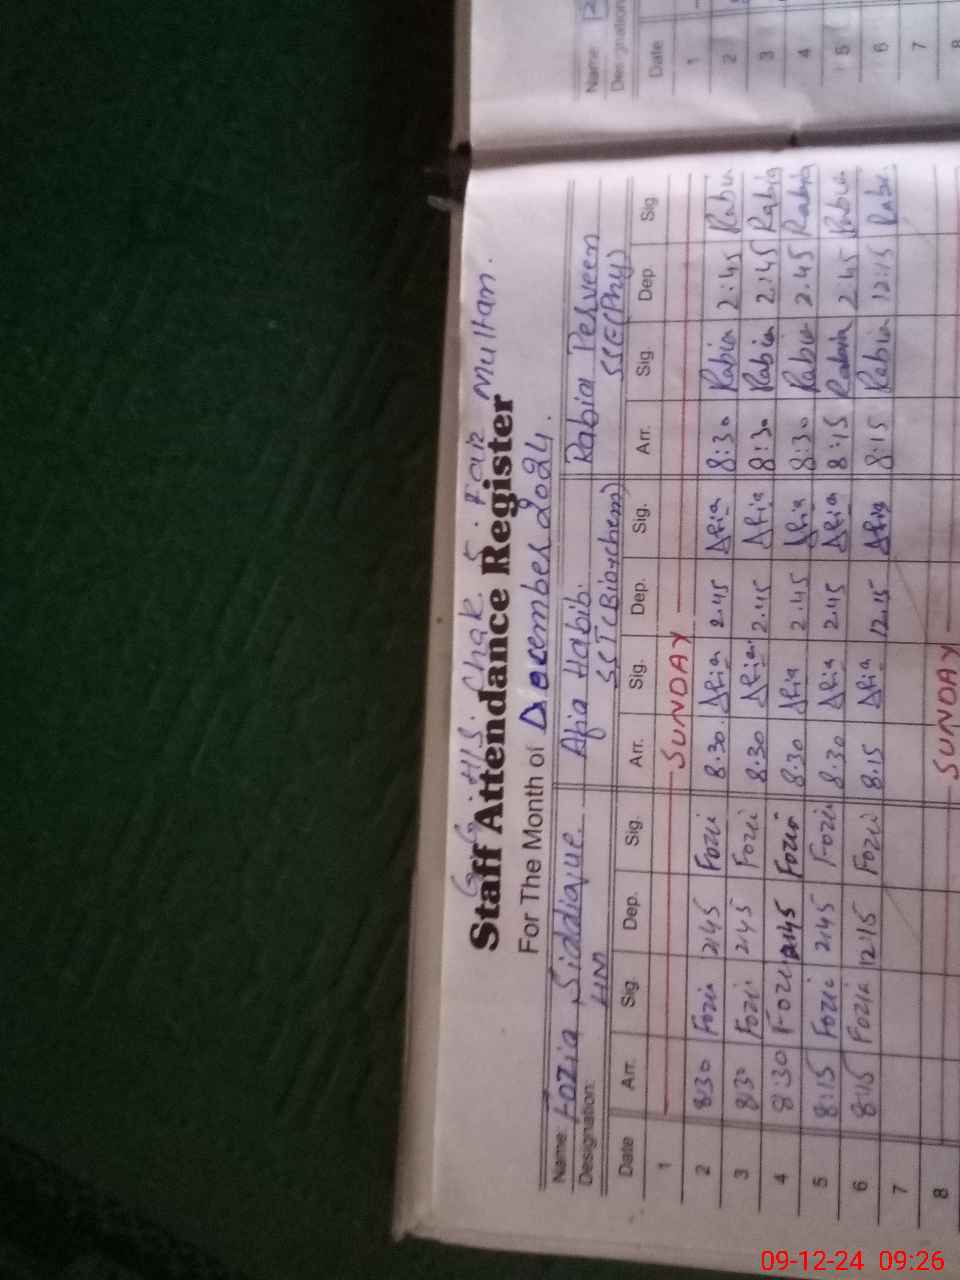 G.G.H.S. Chak 5. Faiz Multan.
Staff Attendance Register
For The Month of December 2024.
Name: Fozia Siddique. Afia Habib. Rabia Perveen
Designation: HM SST(Bio+chem) SSE(Phy)
Date Arr. Sig. Dep. Sig. Arr. Sig. Dep. Sig. Arr. Sig. Dep. Sig.
1 SUNDAY
2 8:30 Fozia 2:45 Fozia 8.30 Afia 2.45 Afia 8:30 Rabia 2:45 Rabia
3 8:30 Fozia 2:45 Fozia 8.30 Afia 2.45 Afia 8:30 Rabia 2:45 Rabia
4 8:30 Fozia 2:45 Fozia 8.30 Afia 2.45 Afia 8:30 Rabia 2.45 Rabia
5 8:15 Fozia 2:45 Fozia 8.30 Afia 2.45 Afia 8:15 Rabia 2:45 Rabia
6 8:15 Fozia 12:15 Fozia 8.15 Afia 12.15 Afia 8:15 Rabia 12:15 Rabia
7
8 SUNDAY
Name
Designation
Date
1
2
3
4
5
6
7
8
09-12-24 09:26